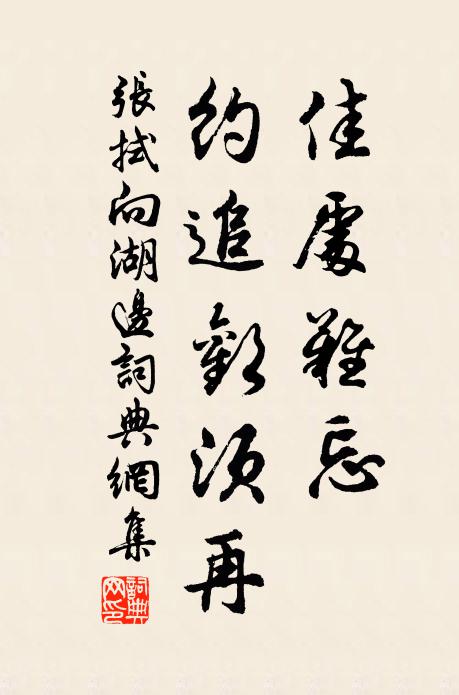 佳處難忘
約追歡須再
張拭向湖邊詞典網集
詞典网印